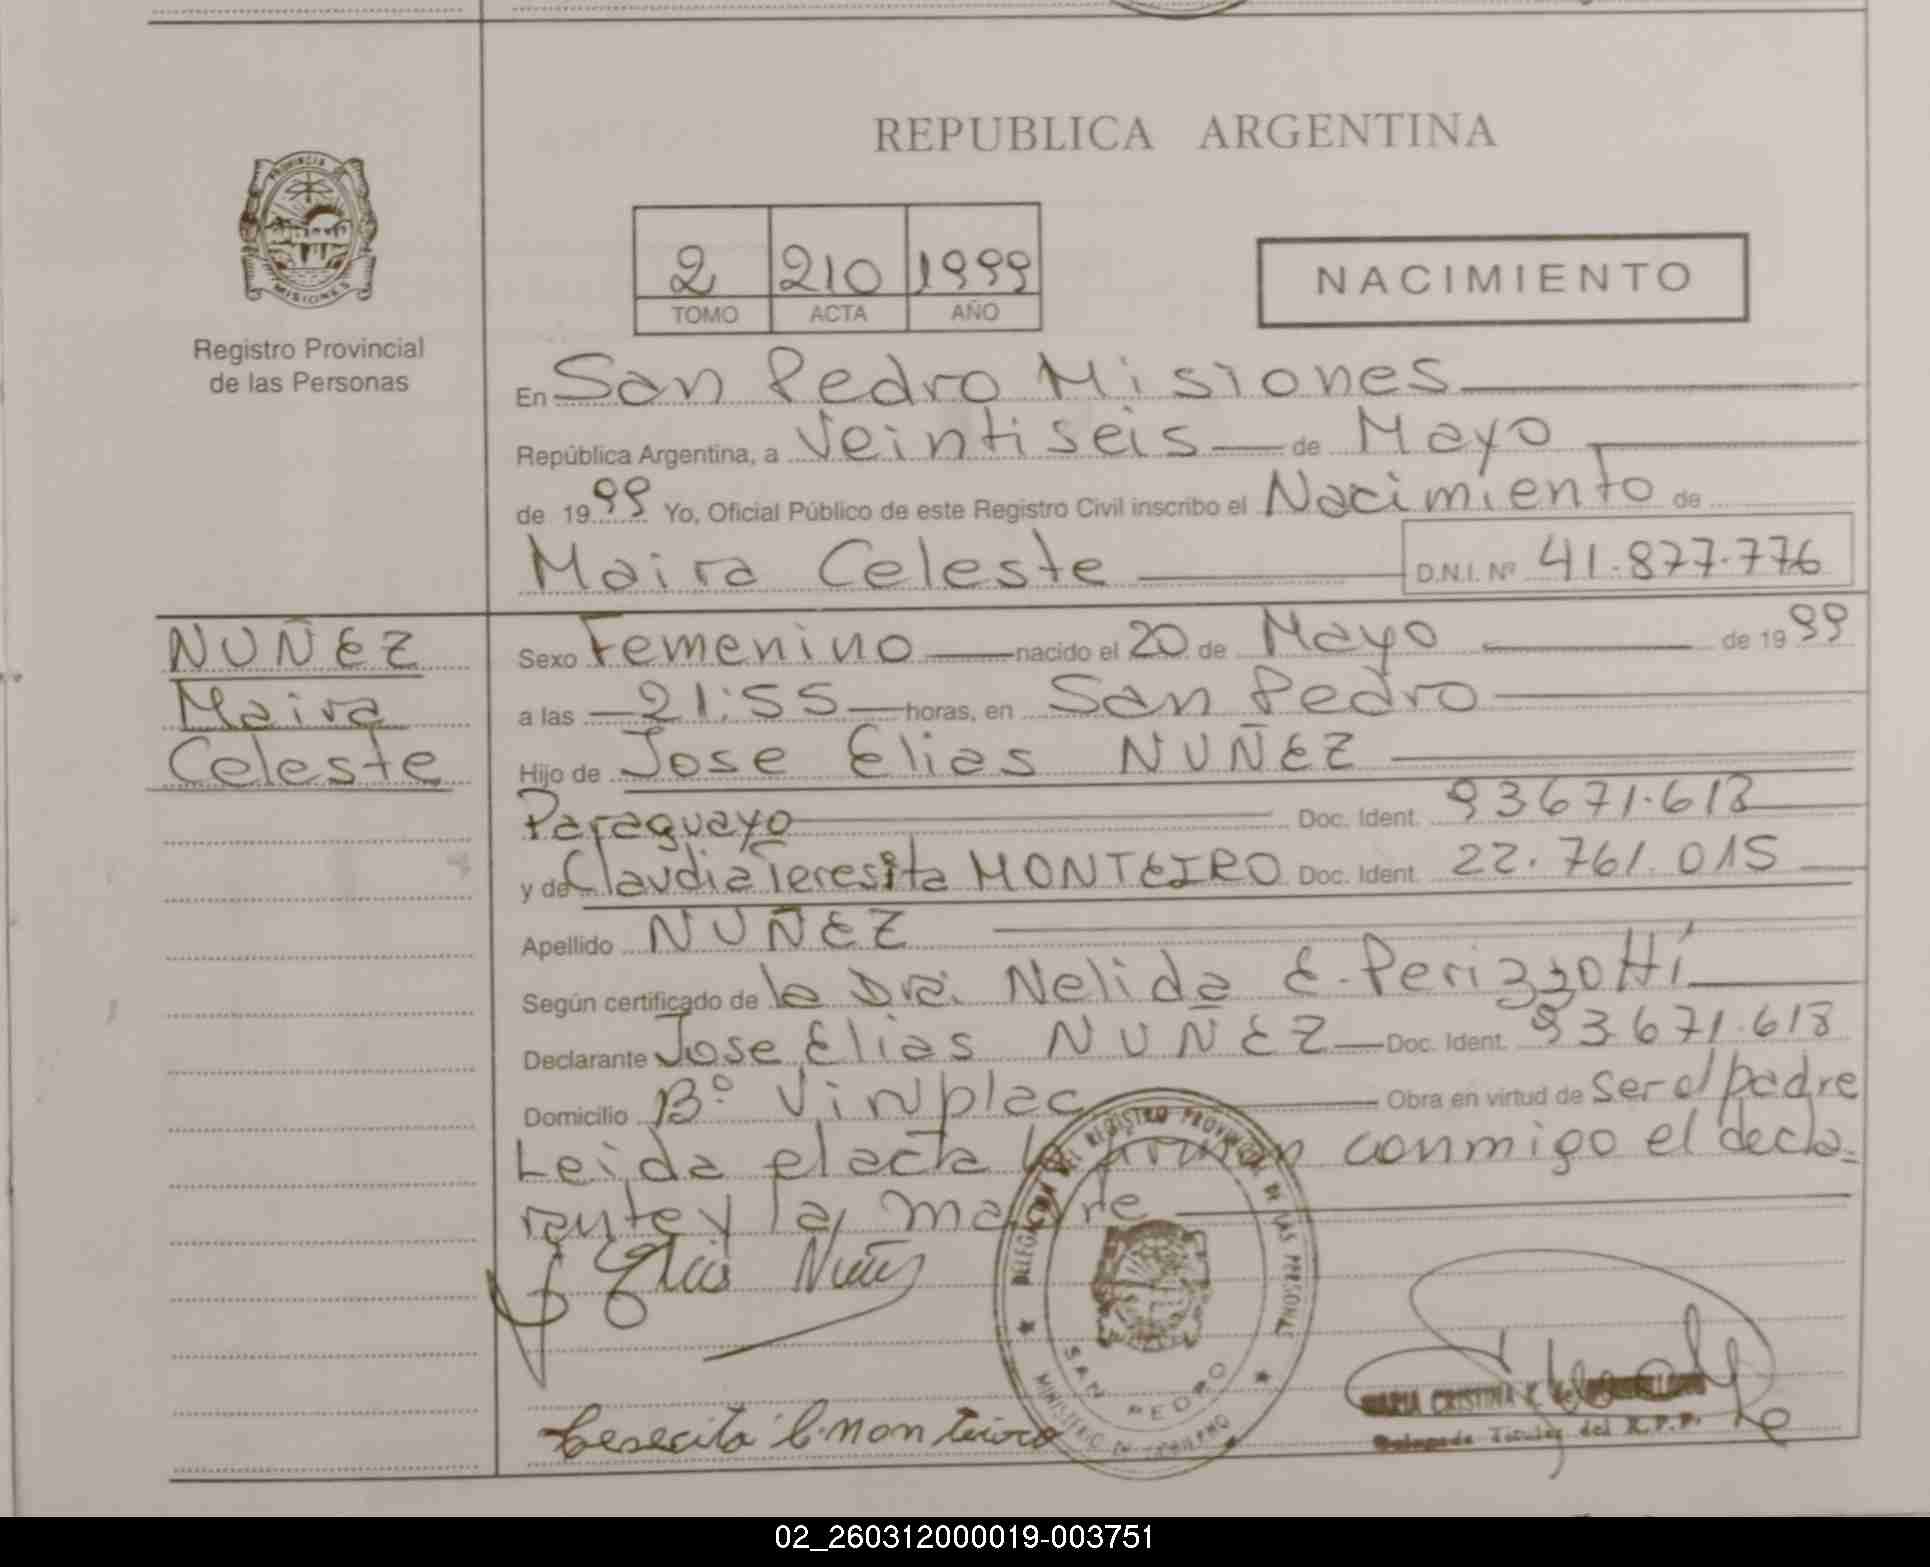 REPUBLICA ARGENTINA
PROVINCIA DE
MISIONES
Registro Provincial
de las Personas
2 210 1999
TOMO ACTA AÑO
NACIMIENTO
En San Pedro Misiones
República Argentina, a Veintiseis de Mayo
de 1999 Yo, Oficial Público de este Registro Civil inscribo el Nacimiento de
Maira Celeste D.N.I. Nº 41.877.776
NUÑEZ
Maira
Celeste
Sexo Femenino nacido el 20 de Mayo de 1999
a las 21:55 horas, en San Pedro
Hijo de Jose Elias NUÑEZ
Paraguayo Doc. Ident. 93671.618
y de Claudia Teresita MONTEIRO Doc. Ident. 22.761.015
Apellido NUÑEZ
Según certificado de la Dra. Nelida E. Perizzotti
Declarante Jose Elias NUÑEZ Doc. Ident. 93.671.618
Domicilio Bº Vinplac Obra en virtud de ser el padre
Leida el acta la firman conmigo el decla=
rante y la madre
DELEGACION DEL REGISTRO PROVINCIAL DE LAS PERSONAS
SAN PEDRO
MINISTERIO DE GOBIERNO
Elias Nuñez
MARIA CRISTINA
Delegada Titular del R.P.P.
Teresita C. Monteiro
02_260312000019-003751